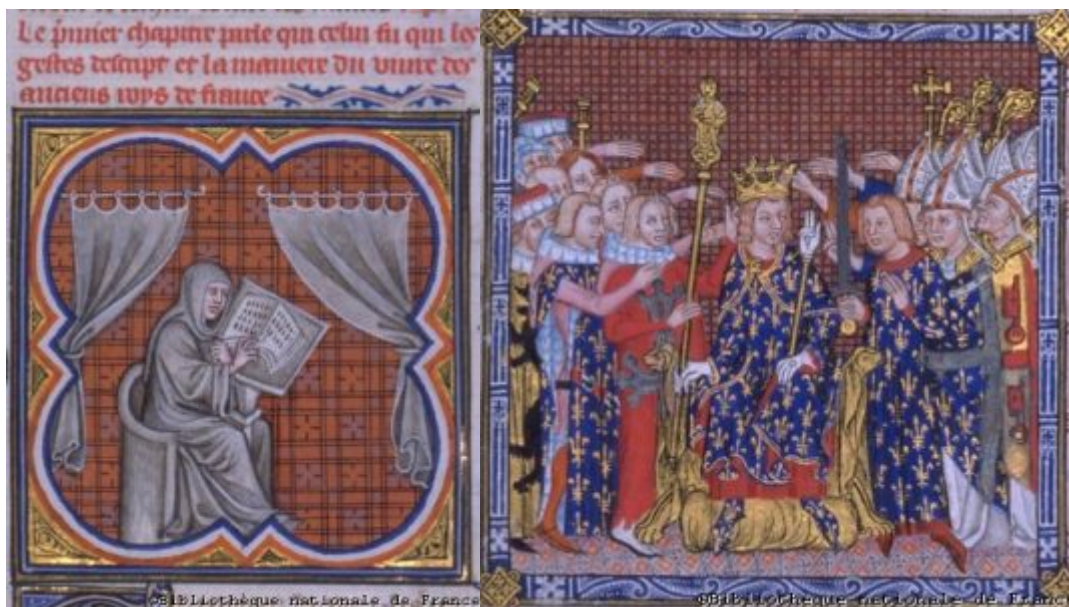 Le pmier chapitre parle qui celui fu qui les
gestes descript et la maniere du viure des
anciens roys de france
©Bibliothèque nationale de France
©Bibliothèque nationale de Franc